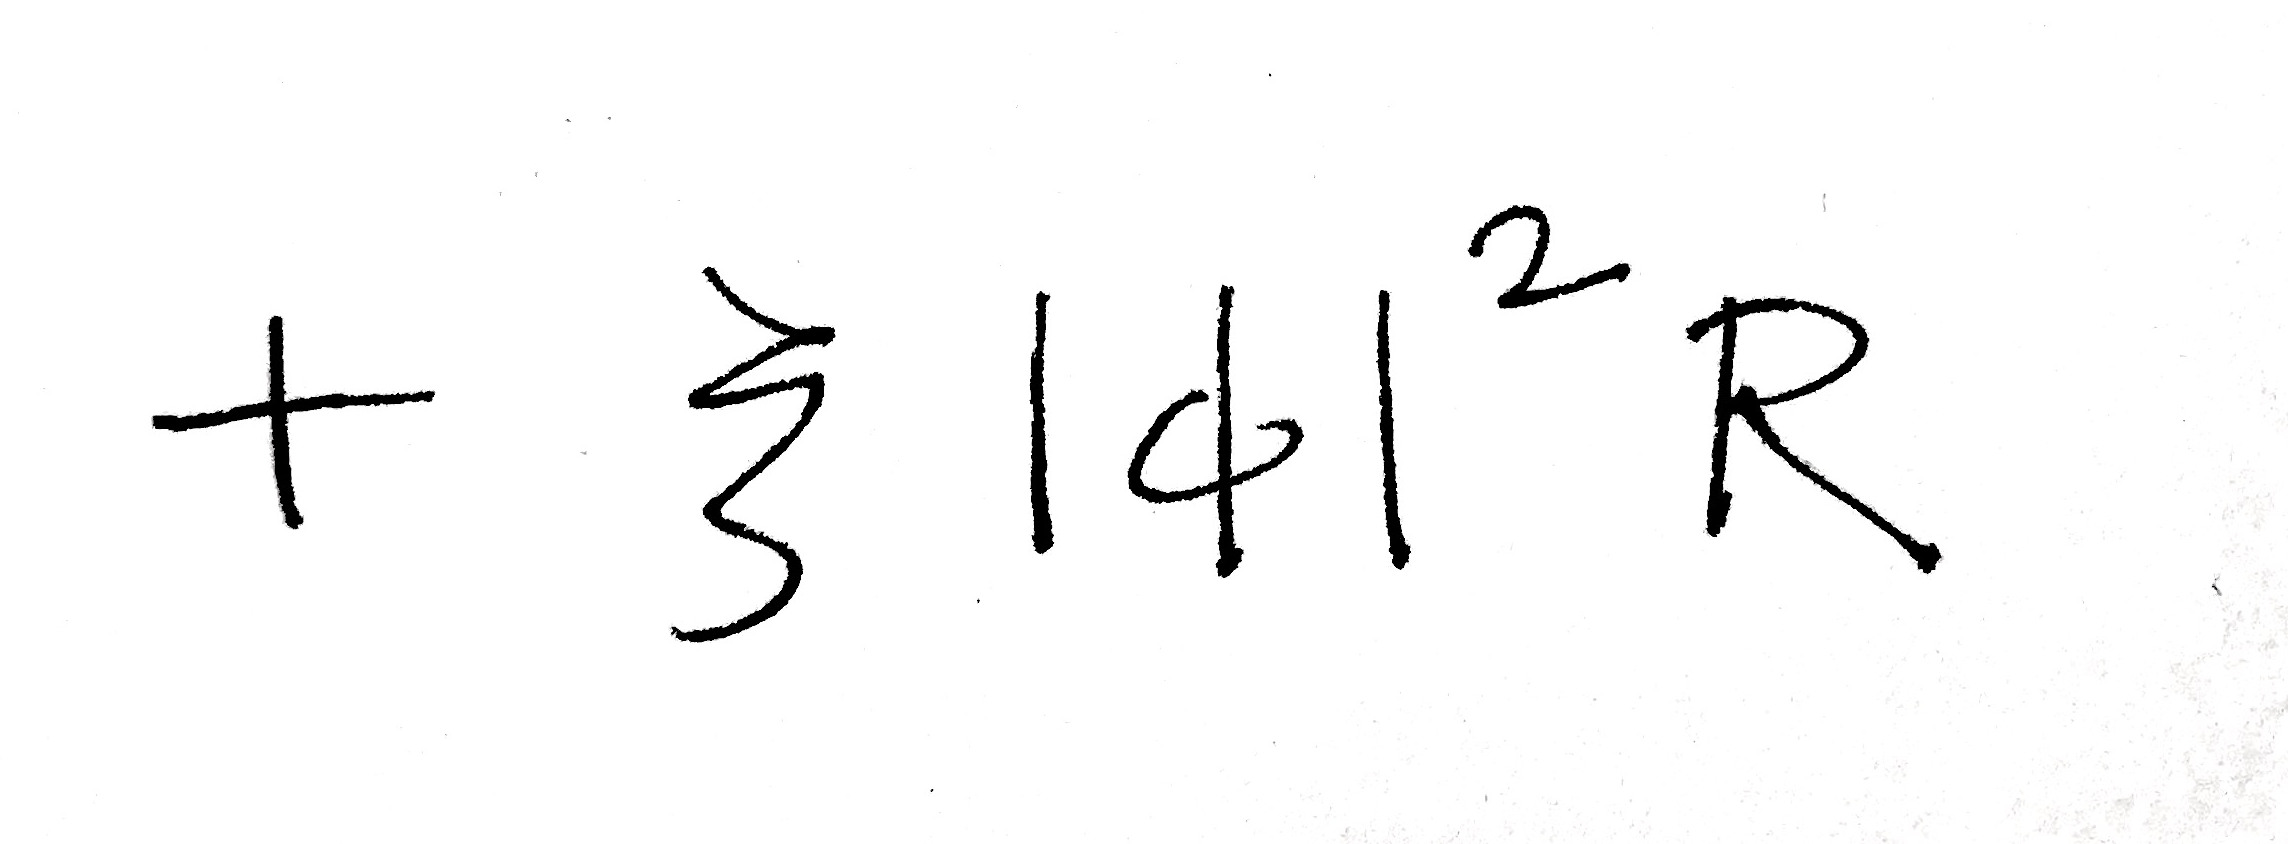 + ξ |ϕ|² R